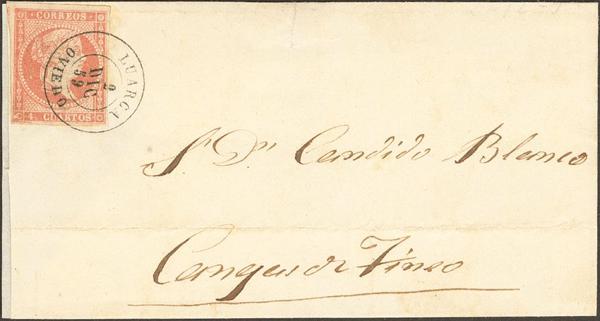 CORREOS
4 CUARTOS
LUARCA
9
DIC
59
OVIEDO
Sr. Dn. Candido Blanco
Cangas de Tineo